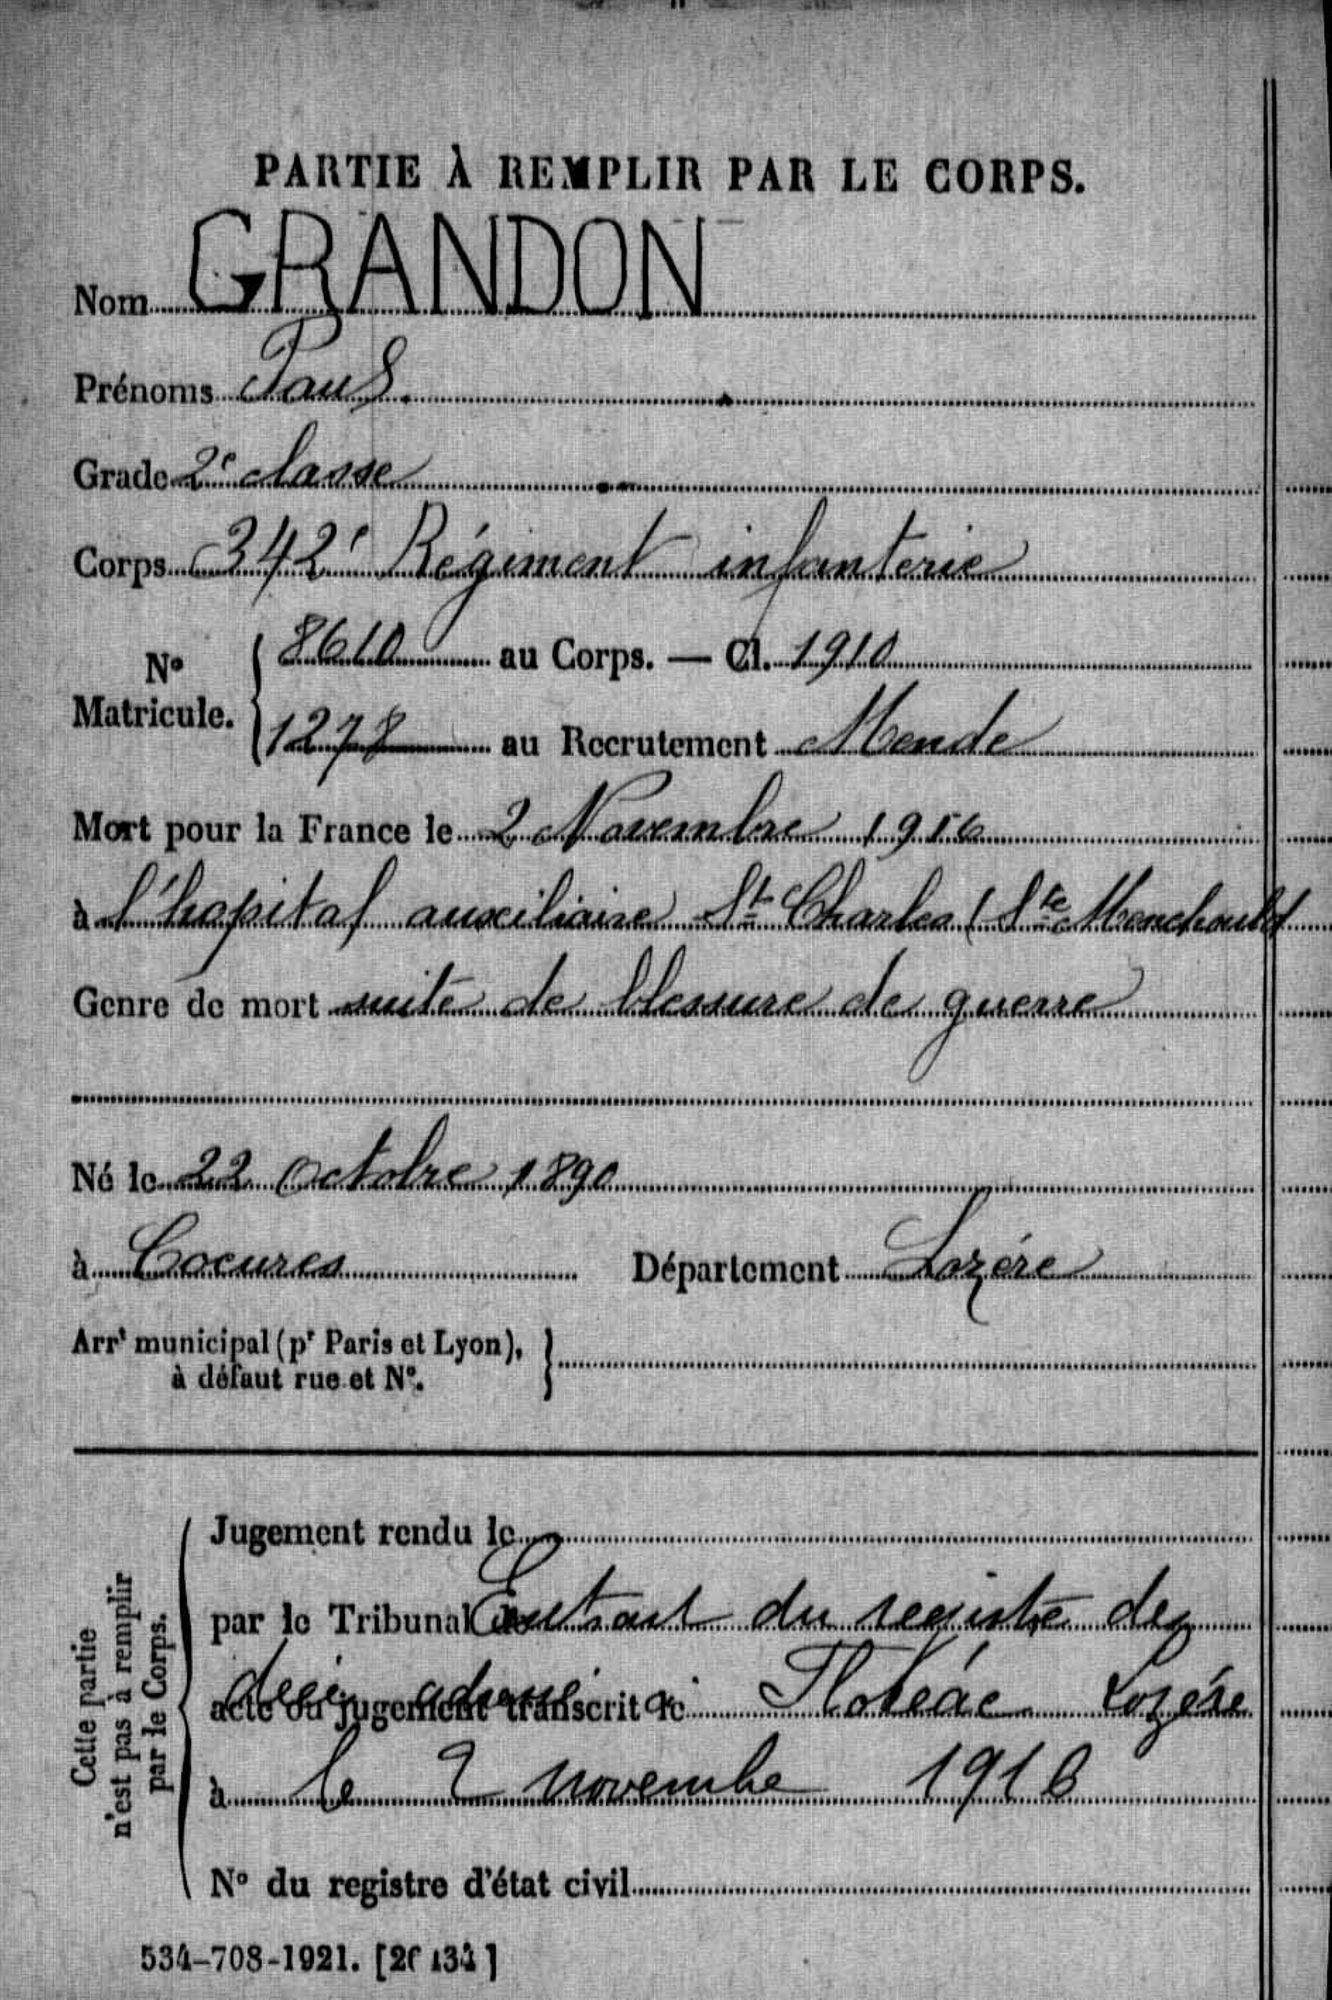 PARTIE À REMPLIR PAR LE CORPS.
Nom GRANDON
Prénoms Paul.
Grade 2e classe
Corps 342e Régiment infanterie
No Matricule. { 8610 au Corps. — Cl. 1910
1278 au Recrutement Mende
Mort pour la France le 2 Novembre 1916
à l'hopital auxiliaire St Charles (Ste Menehould
Genre de mort suite de blessure de guerre
Né le 22 Octobre 1890
à Cocures Département Lozére
Arrt municipal (pr Paris et Lyon), }
à défaut rue et No.
Cette partie n'est pas à remplir par le Corps.
Jugement rendu le
par le Tribunal de Extrait du registre des
acte ou jugement transcrit le décès adressé à Lozére
à le 2 novembre 1916
No du registre d'état civil
534-708-1921. [26134]